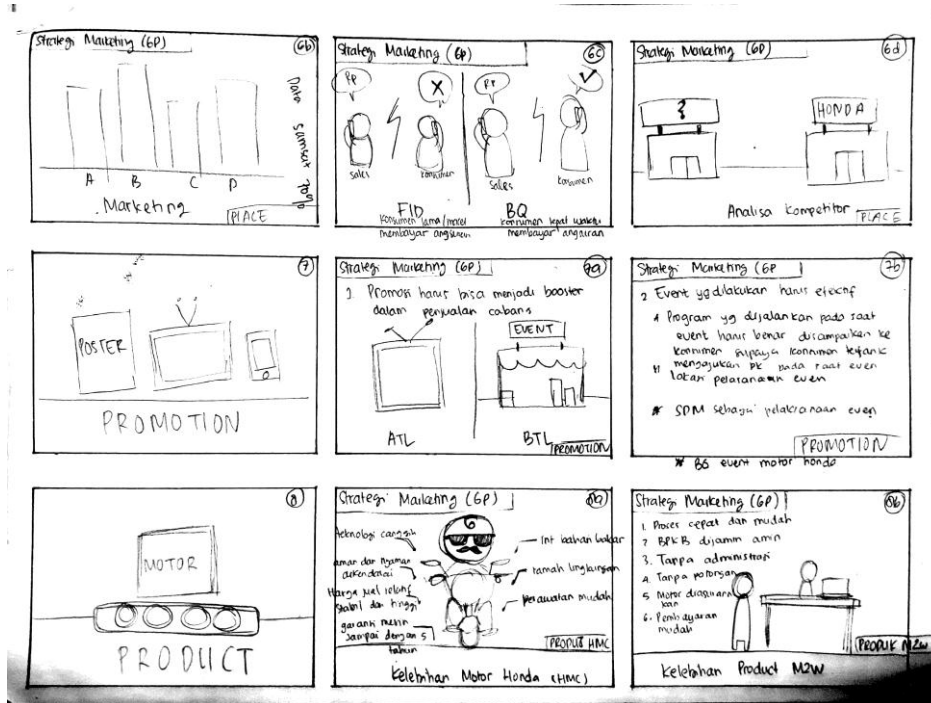 Strategi Marketing (6P)
6b
A B C D
Marketing
PLACE
Strategi Marketing (6P)
6c
Rp
X
Rp
sales
konsumen
Sales
konsumen
FID
BQ
Konsumen lama/macet
membayar angsuran
konsumen tepat waktu
membayar angsuran
Strategi Marketing (6P)
6d
?
HONDA
Analisa Kompetitor
PLACE
7
POSTER
PROMOTION
Strategi Marketing (6P)
7a
Promosi harus bisa menjadi booster
dalam penjualan cabang
EVENT
ATL
BTL
PROMOTION
Strategi Marketing (6P
7b
2 Event yg dilakukan harus efektif
Program yg dijalankan pada saat
event harus benar disampaikan ke
konsumen supaya konsumen tertarik
mengajukan PK pada saat even
lokasi pelaksanaan even
SDM sebagai pelaksanaan even
PROMOTION
event motor honda
8
MOTOR
PRODUCT
Strategi Marketing (6P)
8a
Teknologi canggih
aman dan nyaman
dikendarai
Harga jual
stabil dan tinggi
garansi mesin
sampai dengan 5
tahun
Irit bahan bakar
ramah lingkungan
perawatan mudah
PRODUK HMC
Kelebihan Motor Honda (HMC)
Strategi Marketing (6P)
8b
1. Proses cepat dan mudah
2 BPKB dijamin aman
3. Tanpa administrasi
4. Tanpa potongan
5 Motor diasuransi
kan
6. Pembayaran
mudah
PRODUK M2W
Kelebihan Product M2W